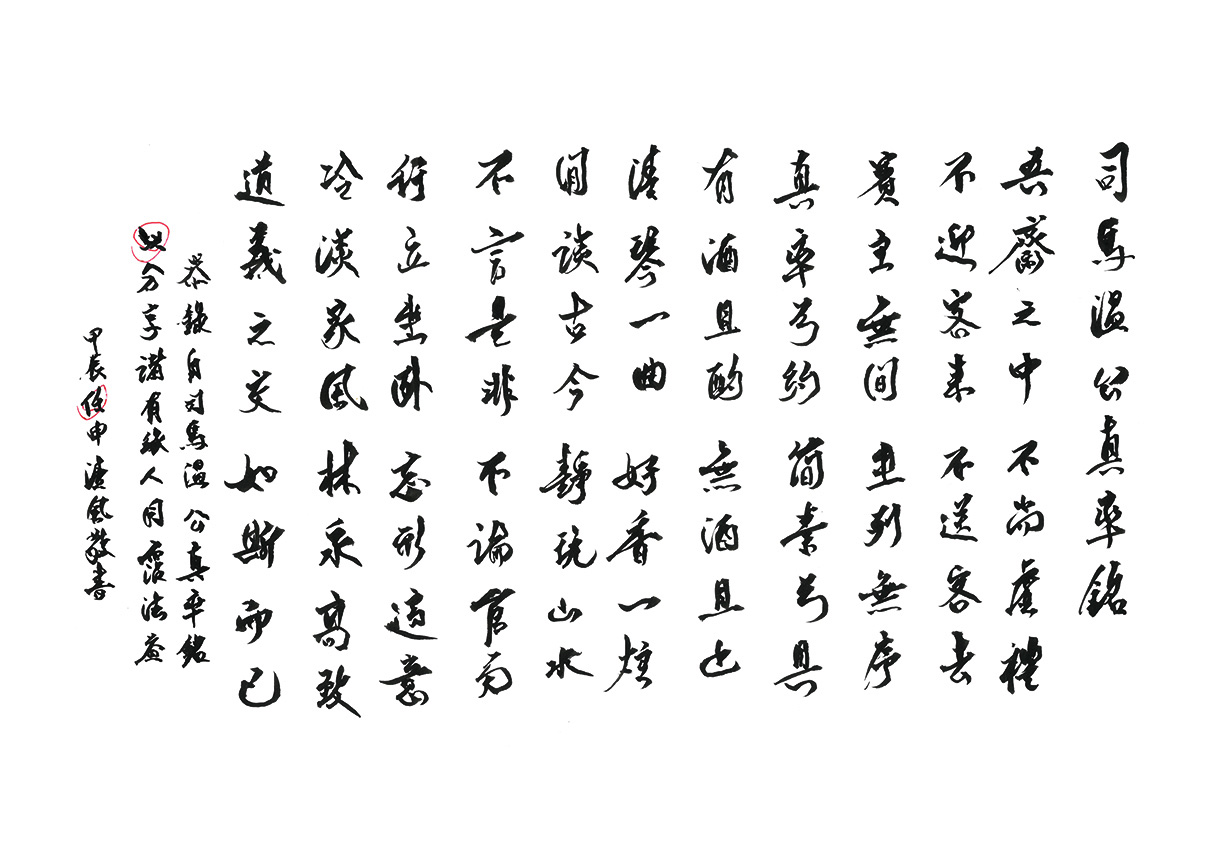 司馬溫公真率銘
吾齋之中 不尚虛禮
不迎客來 不送客去
賓主無間 坐列無序
真率為約 簡素為具
有酒且酌 無酒且止
清琴一曲 好香一炷
閒談古今 靜玩山水
不言是非 不論官
行立坐臥 忘形適意
冷淡家風 林泉高致
道義之交 如斯而已
恭錄自司馬溫公真率銘
以分享諸有緣人同霑法益
甲辰申風敬書